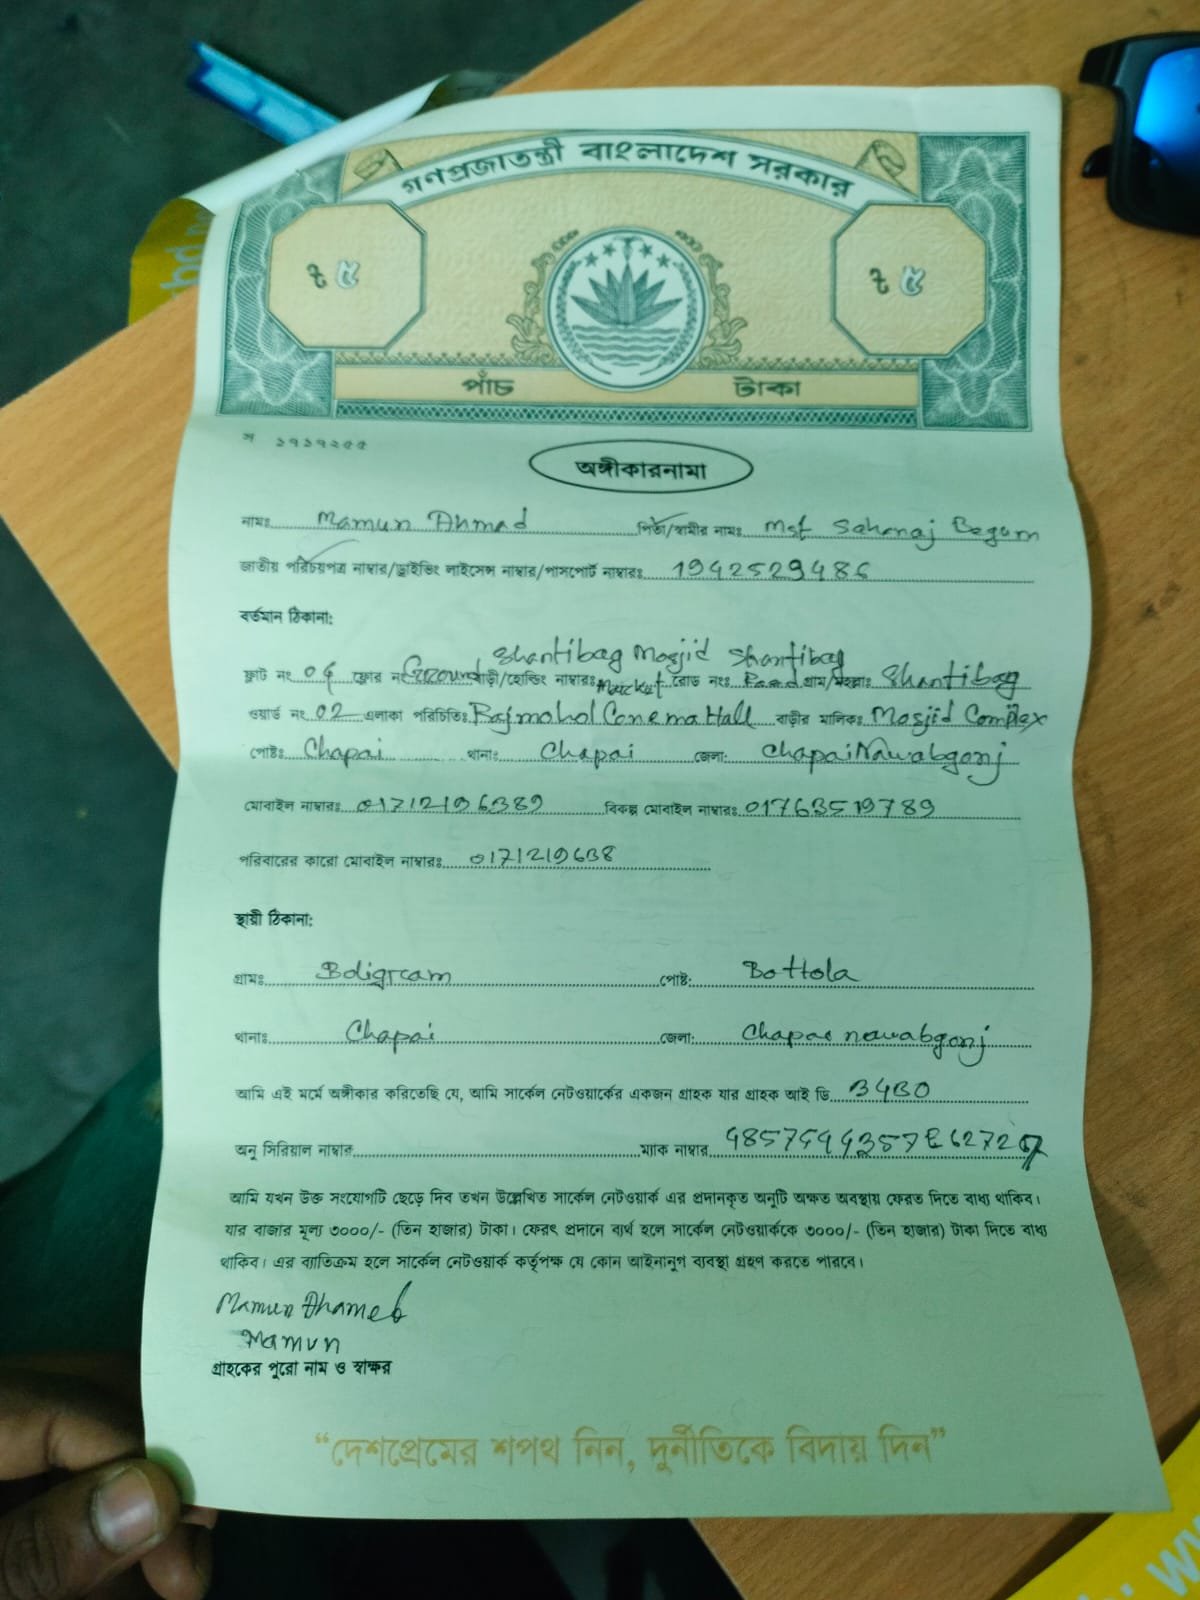 গণপ্রজাতন্ত্রী বাংলাদেশ সরকার
৳ ৫ ৳ ৫
পাঁচ টাকা
স ১৭১৭২৫৫
অঙ্গীকারনামা
নামঃ Mamun Ahmad পিতা/স্বামীর নামঃ Mst Sahanaj Begum
জাতীয় পরিচয়পত্র নাম্বার/ড্রাইভিং লাইসেন্স নাম্বার/পাসপোর্ট নাম্বারঃ 1942529486
বর্তমান ঠিকানা:
Shantibag Mosjid Shantibag
ফ্লাট নং 04 ফ্লোর নং Ground বাড়ী/হোল্ডিং নাম্বারঃ Market রোড নংঃ Road গ্রাম/মহল্লাঃ Shantibag
ওয়ার্ড নং 02 এলাকা পরিচিতিঃ Rajmohol Cenema Hall বাড়ীর মালিকঃ Mosjid Complex
পোষ্টঃ Chapai থানাঃ Chapai জেলা: Chapai Nawabgonj
মোবাইল নাম্বারঃ 01712196389 বিকল্প মোবাইল নাম্বারঃ 01763519789
পরিবারের কারো মোবাইল নাম্বারঃ
স্থায়ী ঠিকানা:
গ্রামঃ Boligram পোষ্ট: Bottola
থানাঃ Chapai জেলা: Chapai nawabgonj
আমি এই মর্মে অঙ্গীকার করিতেছি যে, আমি সার্কেল নেটওয়ার্কের একজন গ্রাহক যার গ্রাহক আই ডি
অনু সিরিয়াল নাম্বার ম্যাক নাম্বার
আমি যখন উক্ত সংযোগটি ছেড়ে দিব তখন উল্লেখিত সার্কেল নেটওয়ার্ক এর প্রদানকৃত অনুটি অক্ষত অবস্থায় ফেরত দিতে বাধ্য থাকিব।
যার বাজার মূল্য ৩০০০/- (তিন হাজার) টাকা। ফেরৎ প্রদানে ব্যর্থ হলে সার্কেল নেটওয়ার্ককে ৩০০০/- (তিন হাজার) টাকা দিতে বাধ্য
থাকিব। এর ব্যাতিক্রম হলে সার্কেল নেটওয়ার্ক কর্তৃপক্ষ যে কোন আইনানুগ ব্যবস্থা গ্রহণ করতে পারবে।
Mamun
Mamun
গ্রাহকের পুরো নাম ও স্বাক্ষর
“দেশপ্রেমের শপথ নিন, দুর্নীতিকে বিদায় দিন”